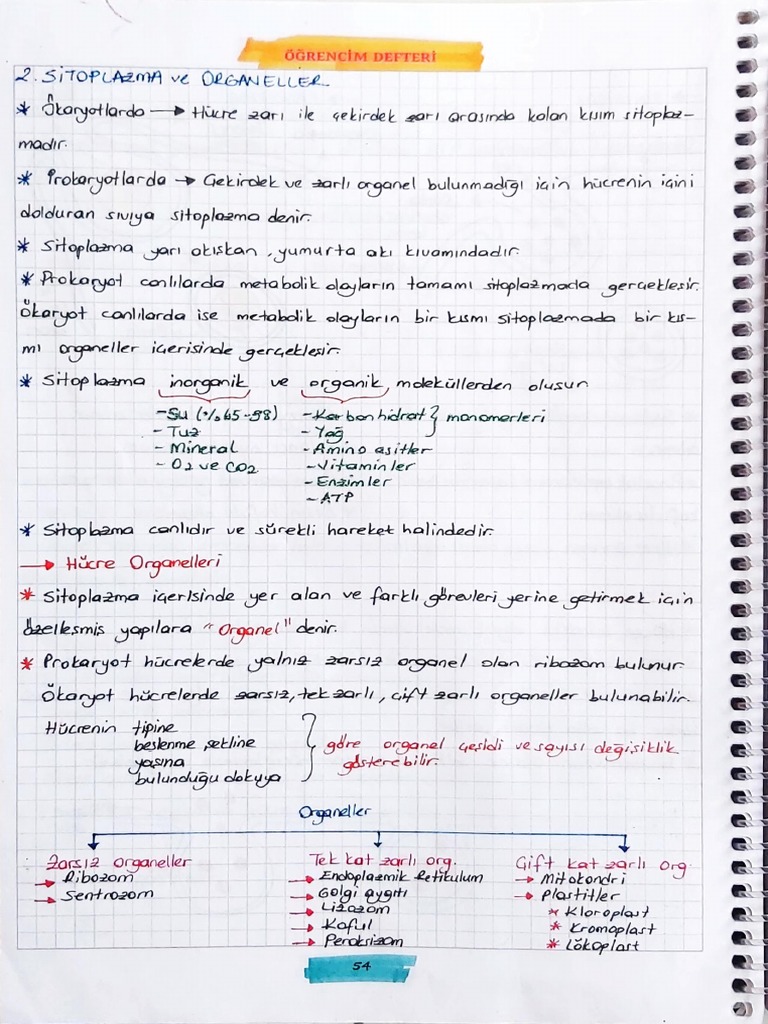 ÖĞRENCİM DEFTERİ
2. SİTOPLAZMA ve ORGANELLER
* Ökaryotlarda → Hücre zarı ile çekirdek zarı arasında kalan kısım sitoplaz-
madır.
* Prokaryotlarda → Çekirdek ve zarlı organel bulunmadığı için hücrenin içini
dolduran sıvıya sitoplazma denir.
* Sitoplazma yarı akışkan, yumurta akı kıvamındadır.
* Prokaryot canlılarda metabolik olayların tamamı sitoplazmada gerçekleşir.
Ökaryot canlılarda ise metabolik olayların bir kısmı sitoplazmada bir kıs-
mı organeller içerisinde gerçekleşir.
* Sitoplazma inorganik ve organik moleküllerden oluşur
-Su (%65-98) -Karbonhidrat } monomerleri
-Tuz -Yağ
-Mineral -Amino asitler
-O2 ve CO2 -Vitaminler
-Enzimler
-ATP
* Sitoplazma canlıdır ve sürekli hareket halindedir.
→ Hücre Organelleri
* Sitoplazma içerisinde yer alan ve farklı görevleri yerine getirmek için
özelleşmiş yapılara "Organel" denir.
* Prokaryot hücrelerde yalnız zarsız organel olan ribozom bulunur.
Ökaryot hücrelerde zarsız, tek zarlı, çift zarlı organeller bulunabilir.
Hücrenin tipine
beslenme şekline } göre organel çeşidi ve sayısı değişiklik
yaşına gösterebilir.
bulunduğu dokuya
Organeller
Zarsız organeller Tek kat zarlı org. Çift kat zarlı org
→ Ribozom → Endoplazmik Retikulum → Mitokondri
→ Sentrozom → Golgi aygıtı → Plastitler
→ Lizozom * Kloroplast
→ Koful * Kromoplast
→ Peroksizom * Lökoplast
54